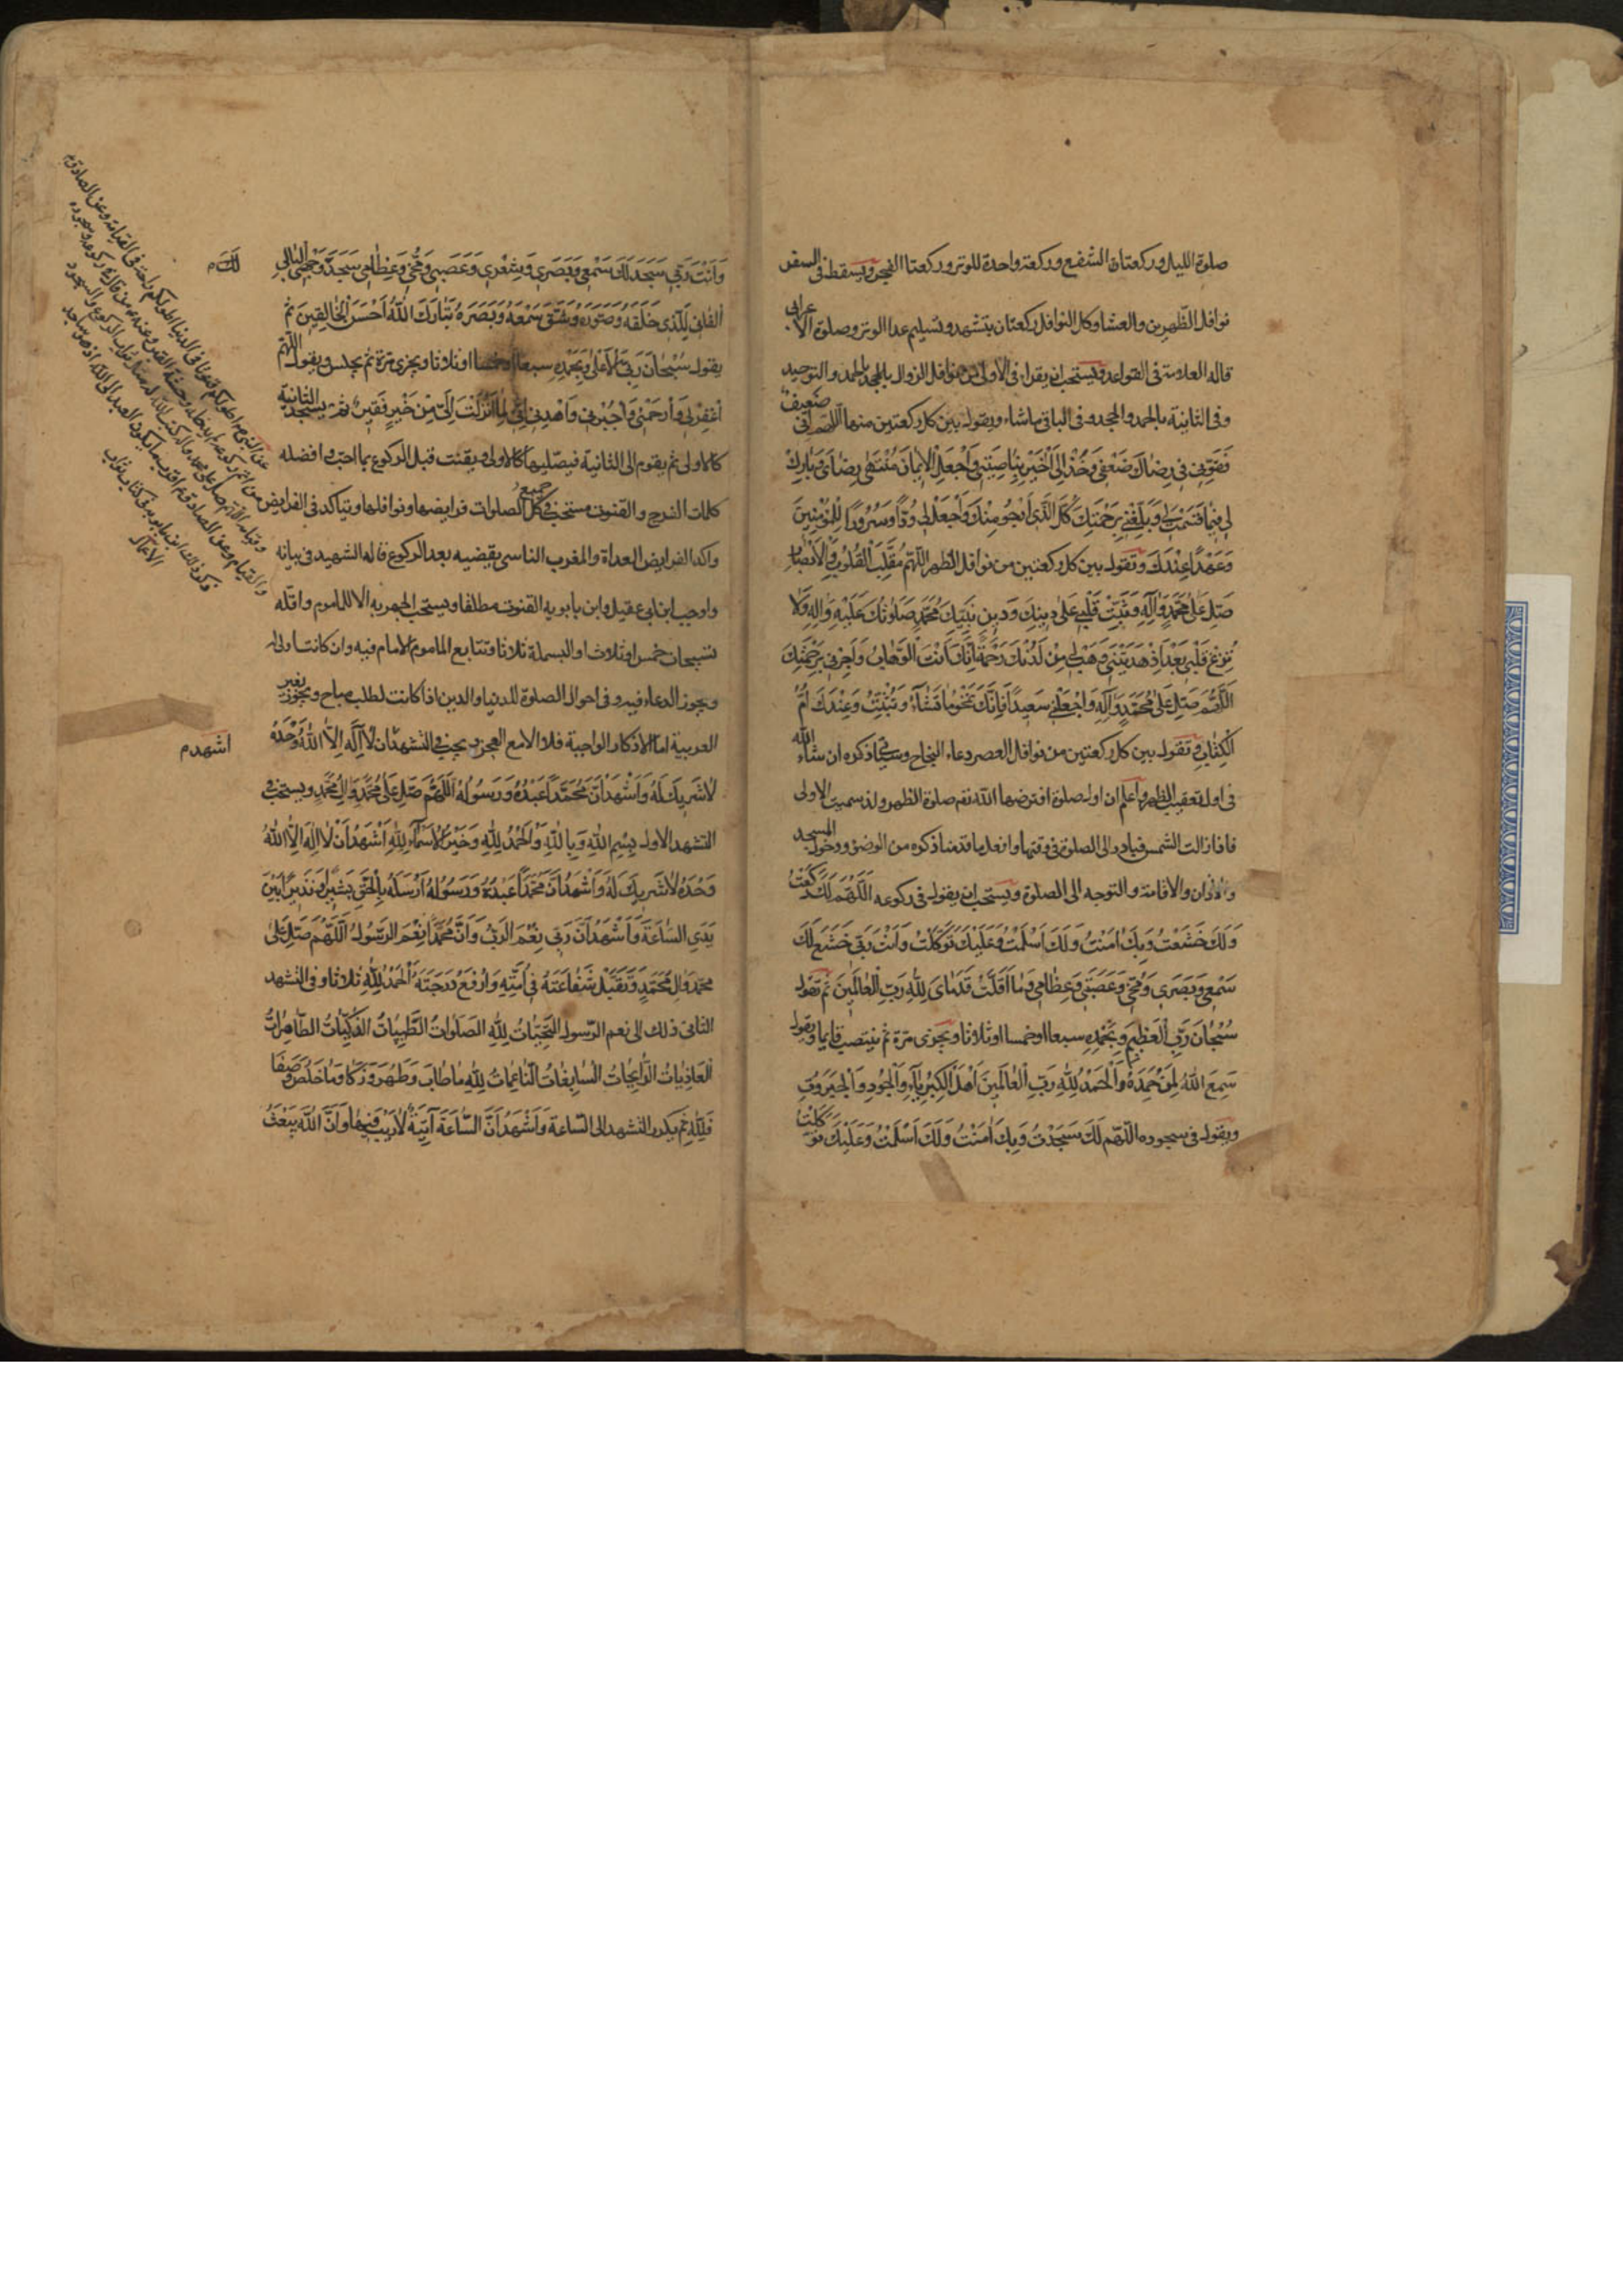 صلوة الليل وركعتان الشفع وركعة واحدة للوتر وركعتا الفجر ويسقط فى السفر
نوافل الظهرين والعشا وكل النوافل ركعتان بتشهد وتسليم عدا الوتر وصلوة الاعرابى
قاله العلامة فى القواعد ويستحب ان يقرا فى الاولى من نوافل الزوال بالحمد والتوحيد
وفى الثانية بالحمد والجحد وفى الباقى ماشاء ويقول بين كل ركعتين منها اللهم انى ضعيف
فَقَوِّنى فى رِضَاكَ ضَعْفى وَخُذْ اِلَى الْخَيْرِ بِنَاصِيَتى وَاجْعَلِ الْاِيمَانَ مُنْتَهٰى رِضَاىَ وَبَارِكْ
لى فيمَا قَسَمْتَ لى وَبَلِّغْنى بِرَحْمَتِكَ كُلَّ الَّذى اَرْجُو مِنْكَ وَاجْعَلْ لى وُدًّا وَسُرُورًا لِلْمُؤْمِنينَ
وَعَهْدًا عِنْدَكَ وتقول بين كل ركعتين من نوافل الظهر اللّهُمَّ مُقَلِّبَ الْقُلُوبِ وَالْاَبْصَارِ
صَلِّ عَلٰى مُحَمَّدٍ وَاٰلِهِ وَثَبِّتْ قَلْبى عَلٰى دينِكَ وَدينِ نَبِيِّكَ مُحَمَّدٍ صَلَوَاتُكَ عَلَيْهِ وَاٰلِهِ وَلَا
تُزِغْ قَلْبى بَعْدَ اِذْ هَدَيْتَنى وَهَبْ لى مِنْ لَدُنْكَ رَحْمَةً اِنَّكَ اَنْتَ الْوَهَّابُ وَاَجِرْنى بِرَحْمَتِكَ
اَللّٰهُمَّ صَلِّ عَلٰى مُحَمَّدٍ وَاٰلِهِ وَاجْعَلْنى سَعيدًا فَاِنَّكَ تَمْحُو مَا تَشَاءُ وَتُثْبِتُ وَعِنْدَكَ اُمُّ
الْكِتَابِ وتقول بين كل ركعتين من نوافل العصر دعاء النجاح وسيجئ ذكره ان شاء الله
فى اول تعقيب الظهر واعلم ان اول صلوة افترضها الله تعم صلوة الظهر ولذا سميت الاولى
فاذا زالت الشمس فبادر الى الصلوة فى وقتها وافعل ما قدمنا ذكره من الوضوء ودخول المسجد
والاذان والاقامة والتوجه الى الصلوة ويستحب ان يقول فى ركوعه اَللّٰهُمَّ لَكَ رَكَعْتُ
وَلَكَ خَشَعْتُ وَبِكَ اٰمَنْتُ وَلَكَ اَسْلَمْتُ وَعَلَيْكَ تَوَكَّلْتُ وَاَنْتَ رَبّى خَشَعَ لَكَ
سَمْعى وَبَصَرى وَمُخّى وَعَصَبى وَعِظَامى وَمَا اَقَلَّتْ قَدَمَاىَ لِلّٰهِ رَبِّ الْعَالَمينَ ثم تقول
سُبْحَانَ رَبِّىَ الْعَظيمِ وَبِحَمْدِهِ سبعا او خمسا او ثلاثا ويجزى مرة ثم ينتصب قايما ويقول
سَمِعَ اللهُ لِمَنْ حَمِدَهُ وَالْحَمْدُ لِلّٰهِ رَبِّ الْعَالَمينَ اَهْلَ الْكِبْرِيَاءِ وَالْجُودِ وَالْجَبَرُوتِ
ويقول فى سجوده اللّٰهُمَّ لَكَ سَجَدْتُ وَبِكَ اٰمَنْتُ وَلَكَ اَسْلَمْتُ وَعَلَيْكَ تَوَكَّلْتُ
وَاَنْتَ رَبّى سَجَدَ لَكَ سَمْعى وَبَصَرى وَشَعْرى وَعَصَبى وَمُخّى وَعِظَامى سَجَدَ وَجْهِىَ الْبَالى
الْفَانى لِلَّذى خَلَقَهُ وَصَوَّرَهُ وَشَقَّ سَمْعَهُ وَبَصَرَهُ تَبَارَكَ اللهُ اَحْسَنُ الْخَالِقينَ ثم
يقول سُبْحَانَ رَبِّىَ الْاَعْلٰى وَبِحَمْدِهِ سبعا او خمسا او ثلاثا ويجزى مرة ثم يجلس ويقول اللهم
اغْفِرْ لى وَارْحَمْنى وَاجْبُرْنى وَاهْدِنى اِنّى لِمَا اَنْزَلْتَ اِلَىَّ مِنْ خَيْرٍ فَقيرٌ ثم يسجد الثانية
كالاولى ثم يقوم الى الثانية فيصليها كالاولى ويقنت قبل الركوع بما احب وافضله
كلمات الفرج والقنوت مستحب فى جميع الصلوات فرايضها ونوافلها ويتاكد فى الفرايض
واكد الفرايض الغداة والمغرب الناسى يقضيه بعد الركوع قاله الشهيد فى بيانه
واوجب ابن ابى عقيل وابن بابويه القنوت مطلقا ويستحب الجهر به الا للماموم واقله
تسبيحات خمس او ثلاث او البسملة ثلاثا وتتابع الماموم الامام فيه وان كانت اولى
ويجوز الدعاء فيه وفى احوال الصلوة للدنيا والدين اذا كانت لطلب مباح ويجوز بغير
العربية اما الاذكار الواجبة فلا الا مع العجز ويجب فى التشهد ان لَا اِلٰهَ اِلَّا اللهُ وَحْدَهُ
لَا شَريكَ لَهُ وَاَشْهَدُ اَنَّ مُحَمَّدًا عَبْدُهُ وَرَسُولُهُ اَللّٰهُمَّ صَلِّ عَلٰى مُحَمَّدٍ وَاٰلِ مُحَمَّدٍ ويستحب فى
التشهد الاول بِسْمِ اللهِ وَبِاللهِ وَالْحَمْدُ لِلّٰهِ وَخَيْرُ الْاَسْمَاءِ لِلّٰهِ اَشْهَدُ اَنْ لَا اِلٰهَ اِلَّا اللهُ
وَحْدَهُ لَا شَريكَ لَهُ وَاَشْهَدُ اَنَّ مُحَمَّدًا عَبْدُهُ وَرَسُولُهُ اَرْسَلَهُ بِالْحَقِّ بَشيرًا وَنَذيرًا بَيْنَ
يَدَىِ السَّاعَةِ وَاَشْهَدُ اَنَّ رَبّى نِعْمَ الرَّبُّ وَاَنَّ مُحَمَّدًا نِعْمَ الرَّسُولُ اَللّٰهُمَّ صَلِّ عَلٰى
مُحَمَّدٍ وَاٰلِ مُحَمَّدٍ وَتَقَبَّلْ شَفَاعَتَهُ فى اُمَّتِهِ وَارْفَعْ دَرَجَتَهُ اَلْحَمْدُ لِلّٰهِ ثلاثا وفى التشهد
الثانى ذلك الى نعم الرسول التَّحِيَّاتُ لِلّٰهِ الصَّلَوَاتُ الطَّيِّبَاتُ الزَّكِيَّاتُ الطَّاهِرَاتُ
الْغَادِيَاتُ الرَّايِحَاتُ السَّابِغَاتُ النَّاعِمَاتُ لِلّٰهِ مَا طَابَ وَطَهُرَ وَزَكَا وَمَا خَلَصَ وَصَفَا
فَلِلّٰهِ ثم يكرر التشهد الى الساعة وَاَشْهَدُ اَنَّ السَّاعَةَ اٰتِيَةٌ لَا رَيْبَ فيهَا وَاَنَّ اللهَ يَبْعَثُ
لَكَ م
اشهد م
عن النبى ص اطولكم قنوتا فى الدنيا اطولكم راحة فى القيامة وعن الصادق